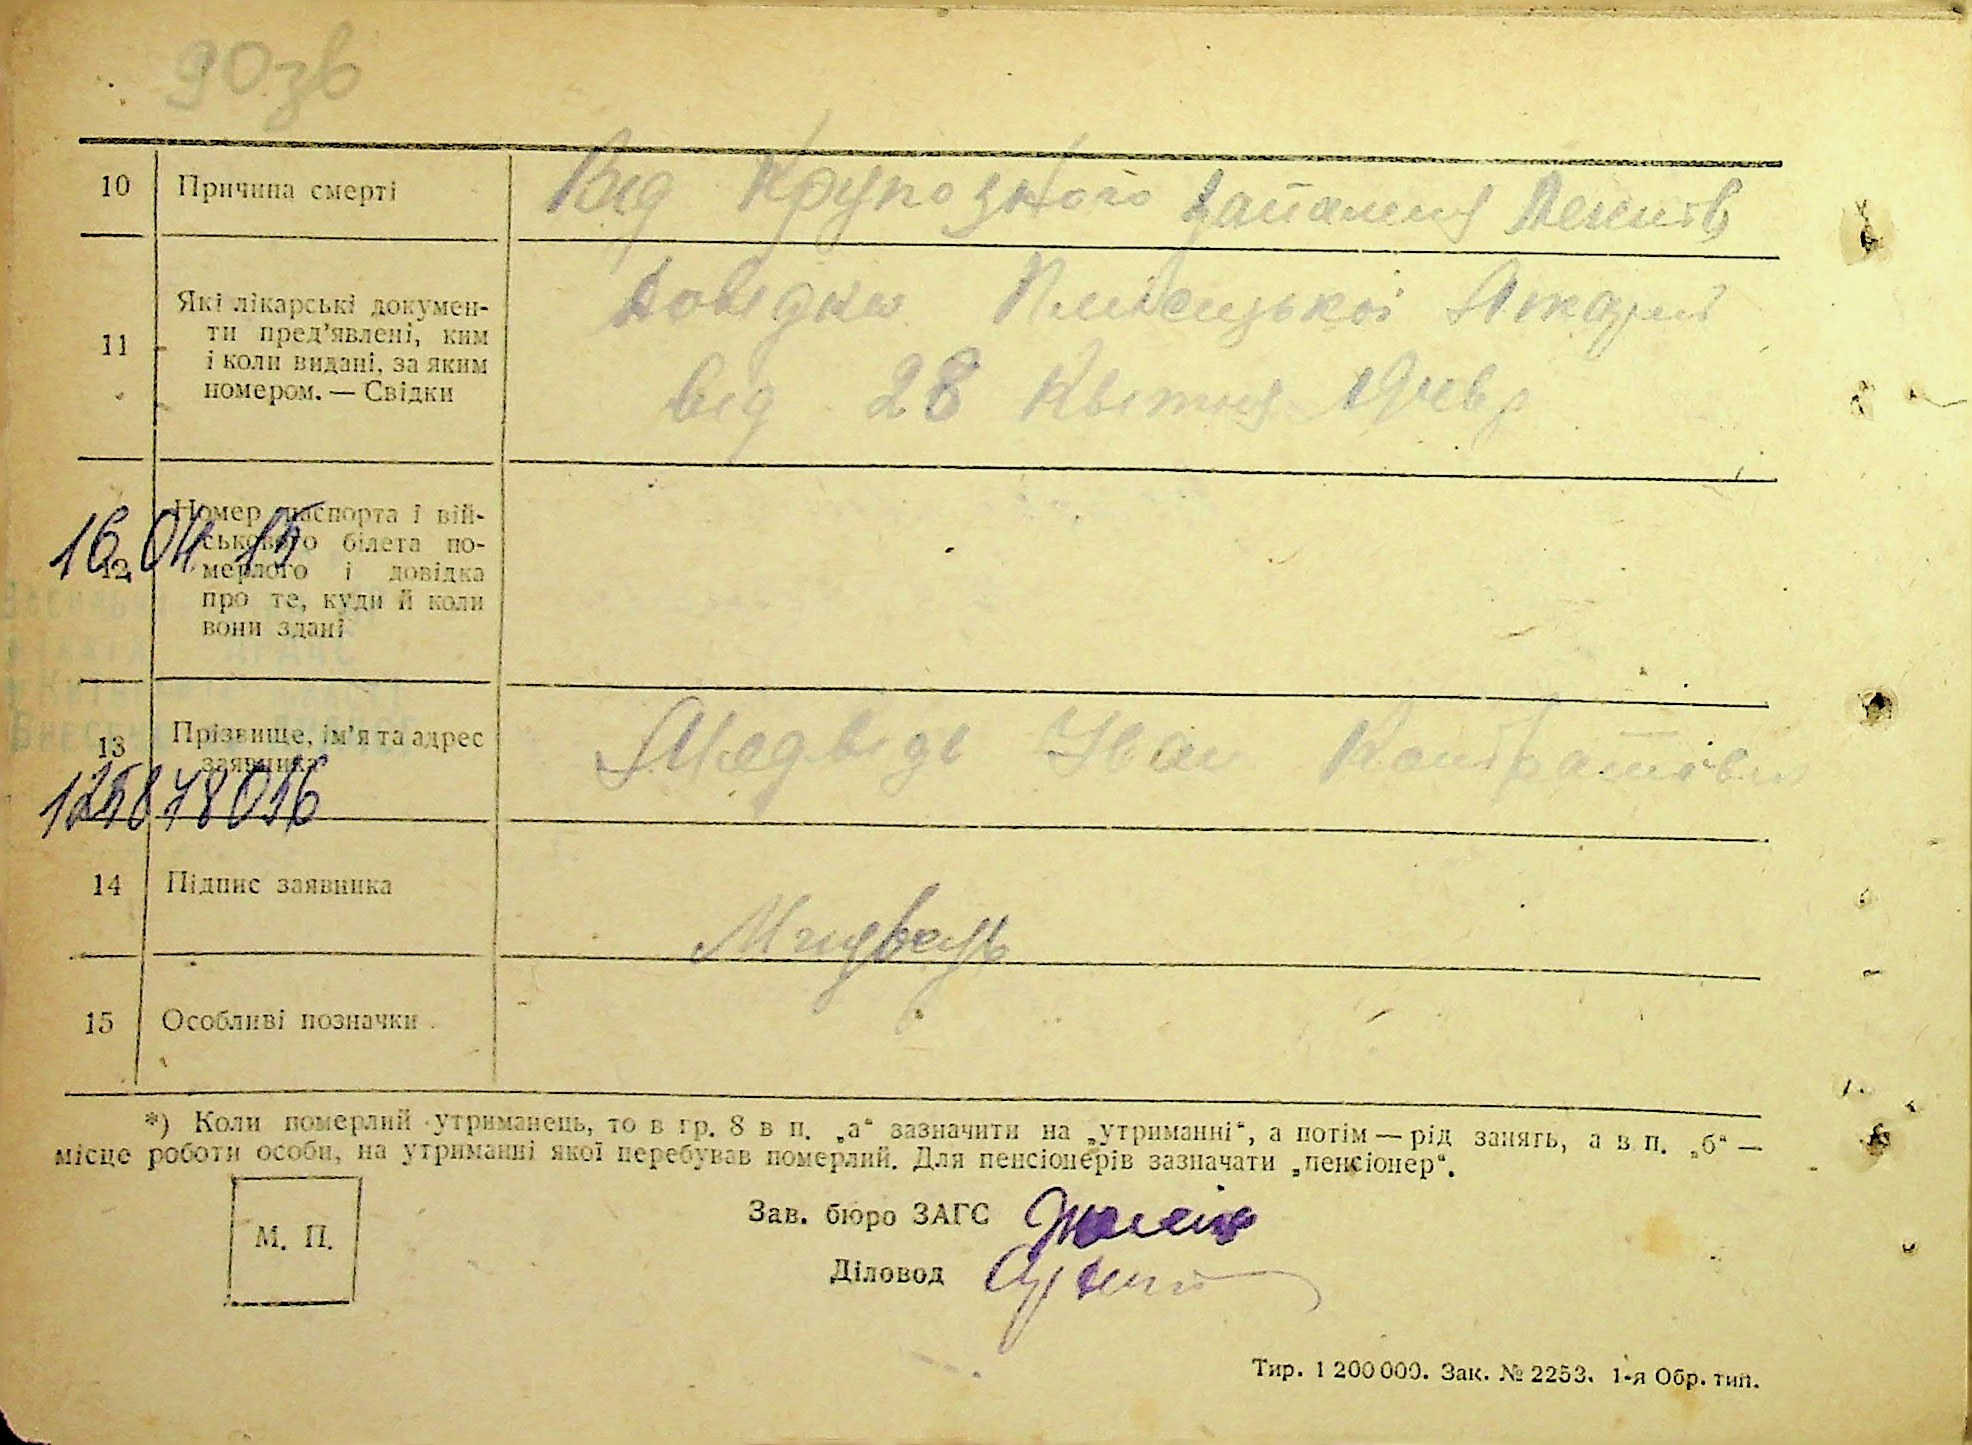 90зв
10 Причина смерті Від Крупозного Запаления Легинів
11 Які лікарські докумен-
ти пред'явлені, ким
і коли видані, за яким
номером. — Свідки
Довідка Плисецької Лікарні
від 28 Квітня
16.04.15
12 Номер паспорта і вій-
ськового білета по-
мерлого і довідка
про те, куди й коли
вони здані
13 Прізвище, ім'я та адрес
заявника
Медведь Іван
14 Підпис заявника
Медведь
15 Особливі позначки
*) Коли померлий утриманець, то в гр. 8 в п. „а“ зазначити на „утриманні“, а потім — рід занять, а в п. „б“ —
місце роботи особи, на утриманні якої перебував померлий. Для пенсіонерів зазначати „пенсіонер“.
М. П.
Зав. бюро ЗАГС
Діловод
Тир. 1 200 000. Зак. № 2253. 1-я Обр. тип.